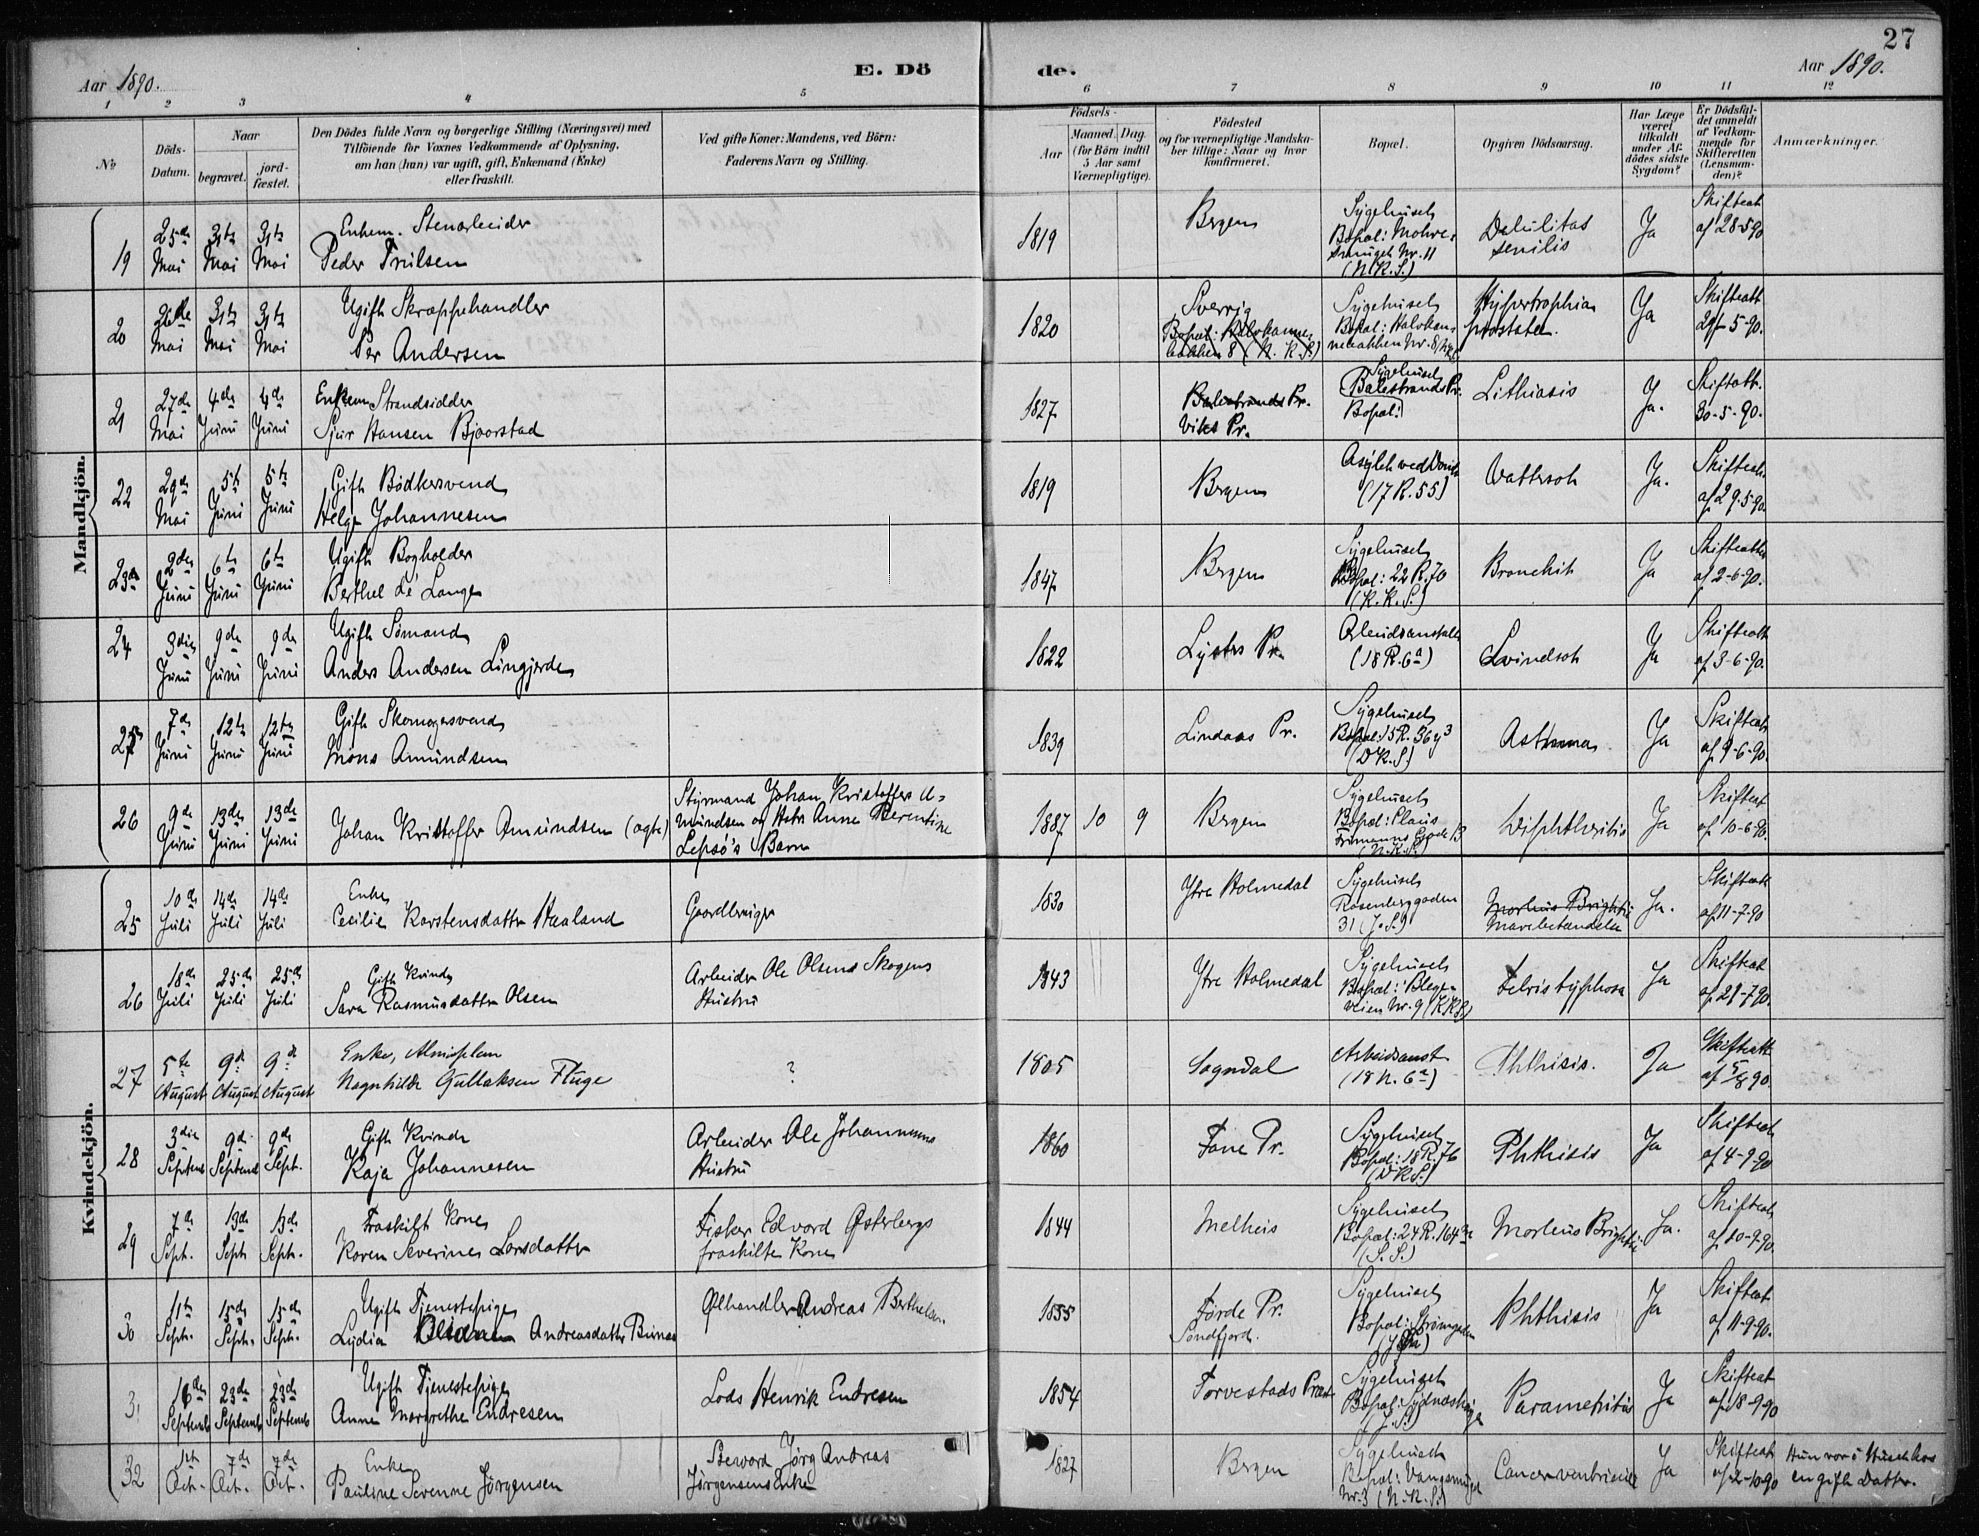 27
Aar 1890.
E. Dö
de.
Aar 1890.
1 2 3 4 5 6 7 8 9 10 11 12
No
Döds-Datum.
Naar
begravet.
jord-fæstet.
Den Dödes fulde Navn og borgerlige Stilling (Næringsvei) med
Tilföiende for Voxnes Vedkommende af Oplysning,
om han (hun) var ugift, gift, Enkemand (Enke)
eller fraskilt.
Ved gifte Koner: Mandens, ved Börn:
Faderens Navn og Stilling.
Födsels-
Aar
Maaned. Dag.
(for Börn indtil
5 Aar samt
Værnepligtige).
Födested
og for værnepligtige Mandska-
ber tillige: Naar og hvor
konfirmeret.
Bopæl.
Opgiven Dödsaarsag.
Har Læge
været
tilkaldt
under Af-
dödes sidste
Sygdom?
Er Dödsfal-
det anmeldt
af Vedkom-
mende for
Skifteretten
(Lensman-
den)?
Anmærkninger.
Mandkjön.
19 25de Mai 31te Mai 31te Mai Enkem. Stenarbeider
Peder Trulsen 1819 Bergen Sygehuset
Bopæl: Mohres
smuget Nr. 11
(N.K.S.) Debilitas
senilis Ja Skifteat
af 28-5-90
20 26de Mai 31te Mai 31te Mai Ugift Skrappehandler
Per Andersen 1820 Sverrig Sygehuset
Hypertrophia
prostatae Ja Skifteatt
5-90.
21 27de Mai 4de Juni 4de Juni Enkem Strandsidder
Sjur Hansen Bjoorstad 1827 Balestrands Pr.
Viks Pr. Sygehuset
Balestrands Pr.
Bopæl: Lithiasis Ja. Skiftatt.
30-5-90.
22 29de Mai 5te Juni 5te Juni Gift Bödkersvend
Helge Johannesen 1819 Bergen Asylet ved
(17 R. 55) Vattersot Ja. Skifteat.
af 29.5-90.
23 2den Juni 6te Juni 6te Juni Ugift Bogholder
Berthel de Lange 1847 Bergen Sygehuset
Bopæl: 22 R. 70
(K.K.S.) Bronchit Ja Skifteatt
af 2-6-90.
24 3die Juni 9de Juni 9de Juni Ugift Sømand
Anders Andersen Lingjerde 1822 Lysters Pr. Arbeidsanstalt
(18 R. 6a) Svindsot Ja Skifteatt
af 3-6-90.
25 7de Juni 12te Juni 12te Juni Gift Skomagersvend
Mons Amundsen 1839 Lindaas Pr. Sygehuset
Bopæl: 15 R. 36 y3
(D.K.S.) Asthma Ja Skifteat
af 9-6-90.
26 9de Juni 13de Juni 13de Juni Johan Kristoffer Amundsen (ægte) Styrmand Johan Kristoffer A-
mundsen og Hstr Anne Berentine
Lepsø's Barn 1887 10 9 Bergen Sygehuset
Bopæl: Claus
(N.K.S.) Diphtheritis Ja Skifteat
af 10-6-90.
Kvindekjön.
25 10de Juli 14de Juli 14de Juli Enke
Cecilie Karstensdatter Haaland Gaardbruger 1830 Ytre Holmedal Sygehuset
Rosenberggaden
31 (J.S.) Morbus Brightii
Mavebetændelse Ja. Skifteatt
af 11-7-90
26 18de Juli 25de Juli 25de Juli Gift Kvinde
Sara Rasmusdatter Olsen Arbeider Ole Olsens Skogens
Hustru 1843 Ytre Holmedal Sygehuset
Bopæl: Blege-
veien Nr. 9 (K.K.S.) Febris typhosa Ja Skifteat
af 21-7-90.
27 5te August 9de August 9de August Enke, Almisselem
Ragnhilde Gullaksen Fluge ? 1805 Sogndal Arbeidsanst.
(18 R. 6a) Phthisis. Ja Skifteatt
af 5/8 90.
28 3die Septemb 9de Septemb 9de Sept. Gift Kvinde
Kaja Johannesen Arbeider Ole Johannesens
Hustru 1860 Fane Pr. Sygehuset
Bopæl: 18 R. 76
(D.K.S.) Phthisis Ja Skifteat
af 4-9-90
29 7de Sept. 13de Sept. 13de Sept. Fraskilt Kone
Karen Severine Larsdatter Fisker Edvard Østerbergs
fraskilte Kone 1844 Melheis Sygehuset
Bopæl: 24 R. 164
(S.S.) Morbus Brightii Ja. Skifteat
af 10-9-90.
30 11te Sept. 15de Sept. 15de Sept. Ugift Tjenestepige
Lydia Andreasdatter Ølhandler Andreas Berthelsen 1855 Førde Pr.
Søndfjord. Sygehuset
Bopæl: Strømgaden Phthisis Ja Skifteat
af 11-9-90.
31 16de Septemb 23de Septemb 23de Septemb Ugift Tjenestepige
Anne Margrethe Endresen Lods Henrik Endresen 1854 Torvestads Præst. Sygehuset
Bopæl: Sydnæs
(J.S.) Parametritis Ja Skifteat
af 18-9-90
32 1ste Oct. 7de Oct. 7de Oct. Enke
Pauline Severine Jørgensen Steward Jørg Andreas
Jørgensens Enke 1827 Bergen Sygehuset
Bopæl: Vangsmuget
Nr. 3 (N.K.S.) Cancer ventriculi Ja Skifteat
af 2-10-90 Hun var i Huset hos
en gift Datter.